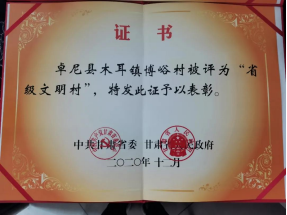 证书
卓尼县木耳镇博峪村被评为“省
级文明村”，特发此证予以表彰。
中共甘肃省委 甘肃省人民政府
二〇二〇年十二月